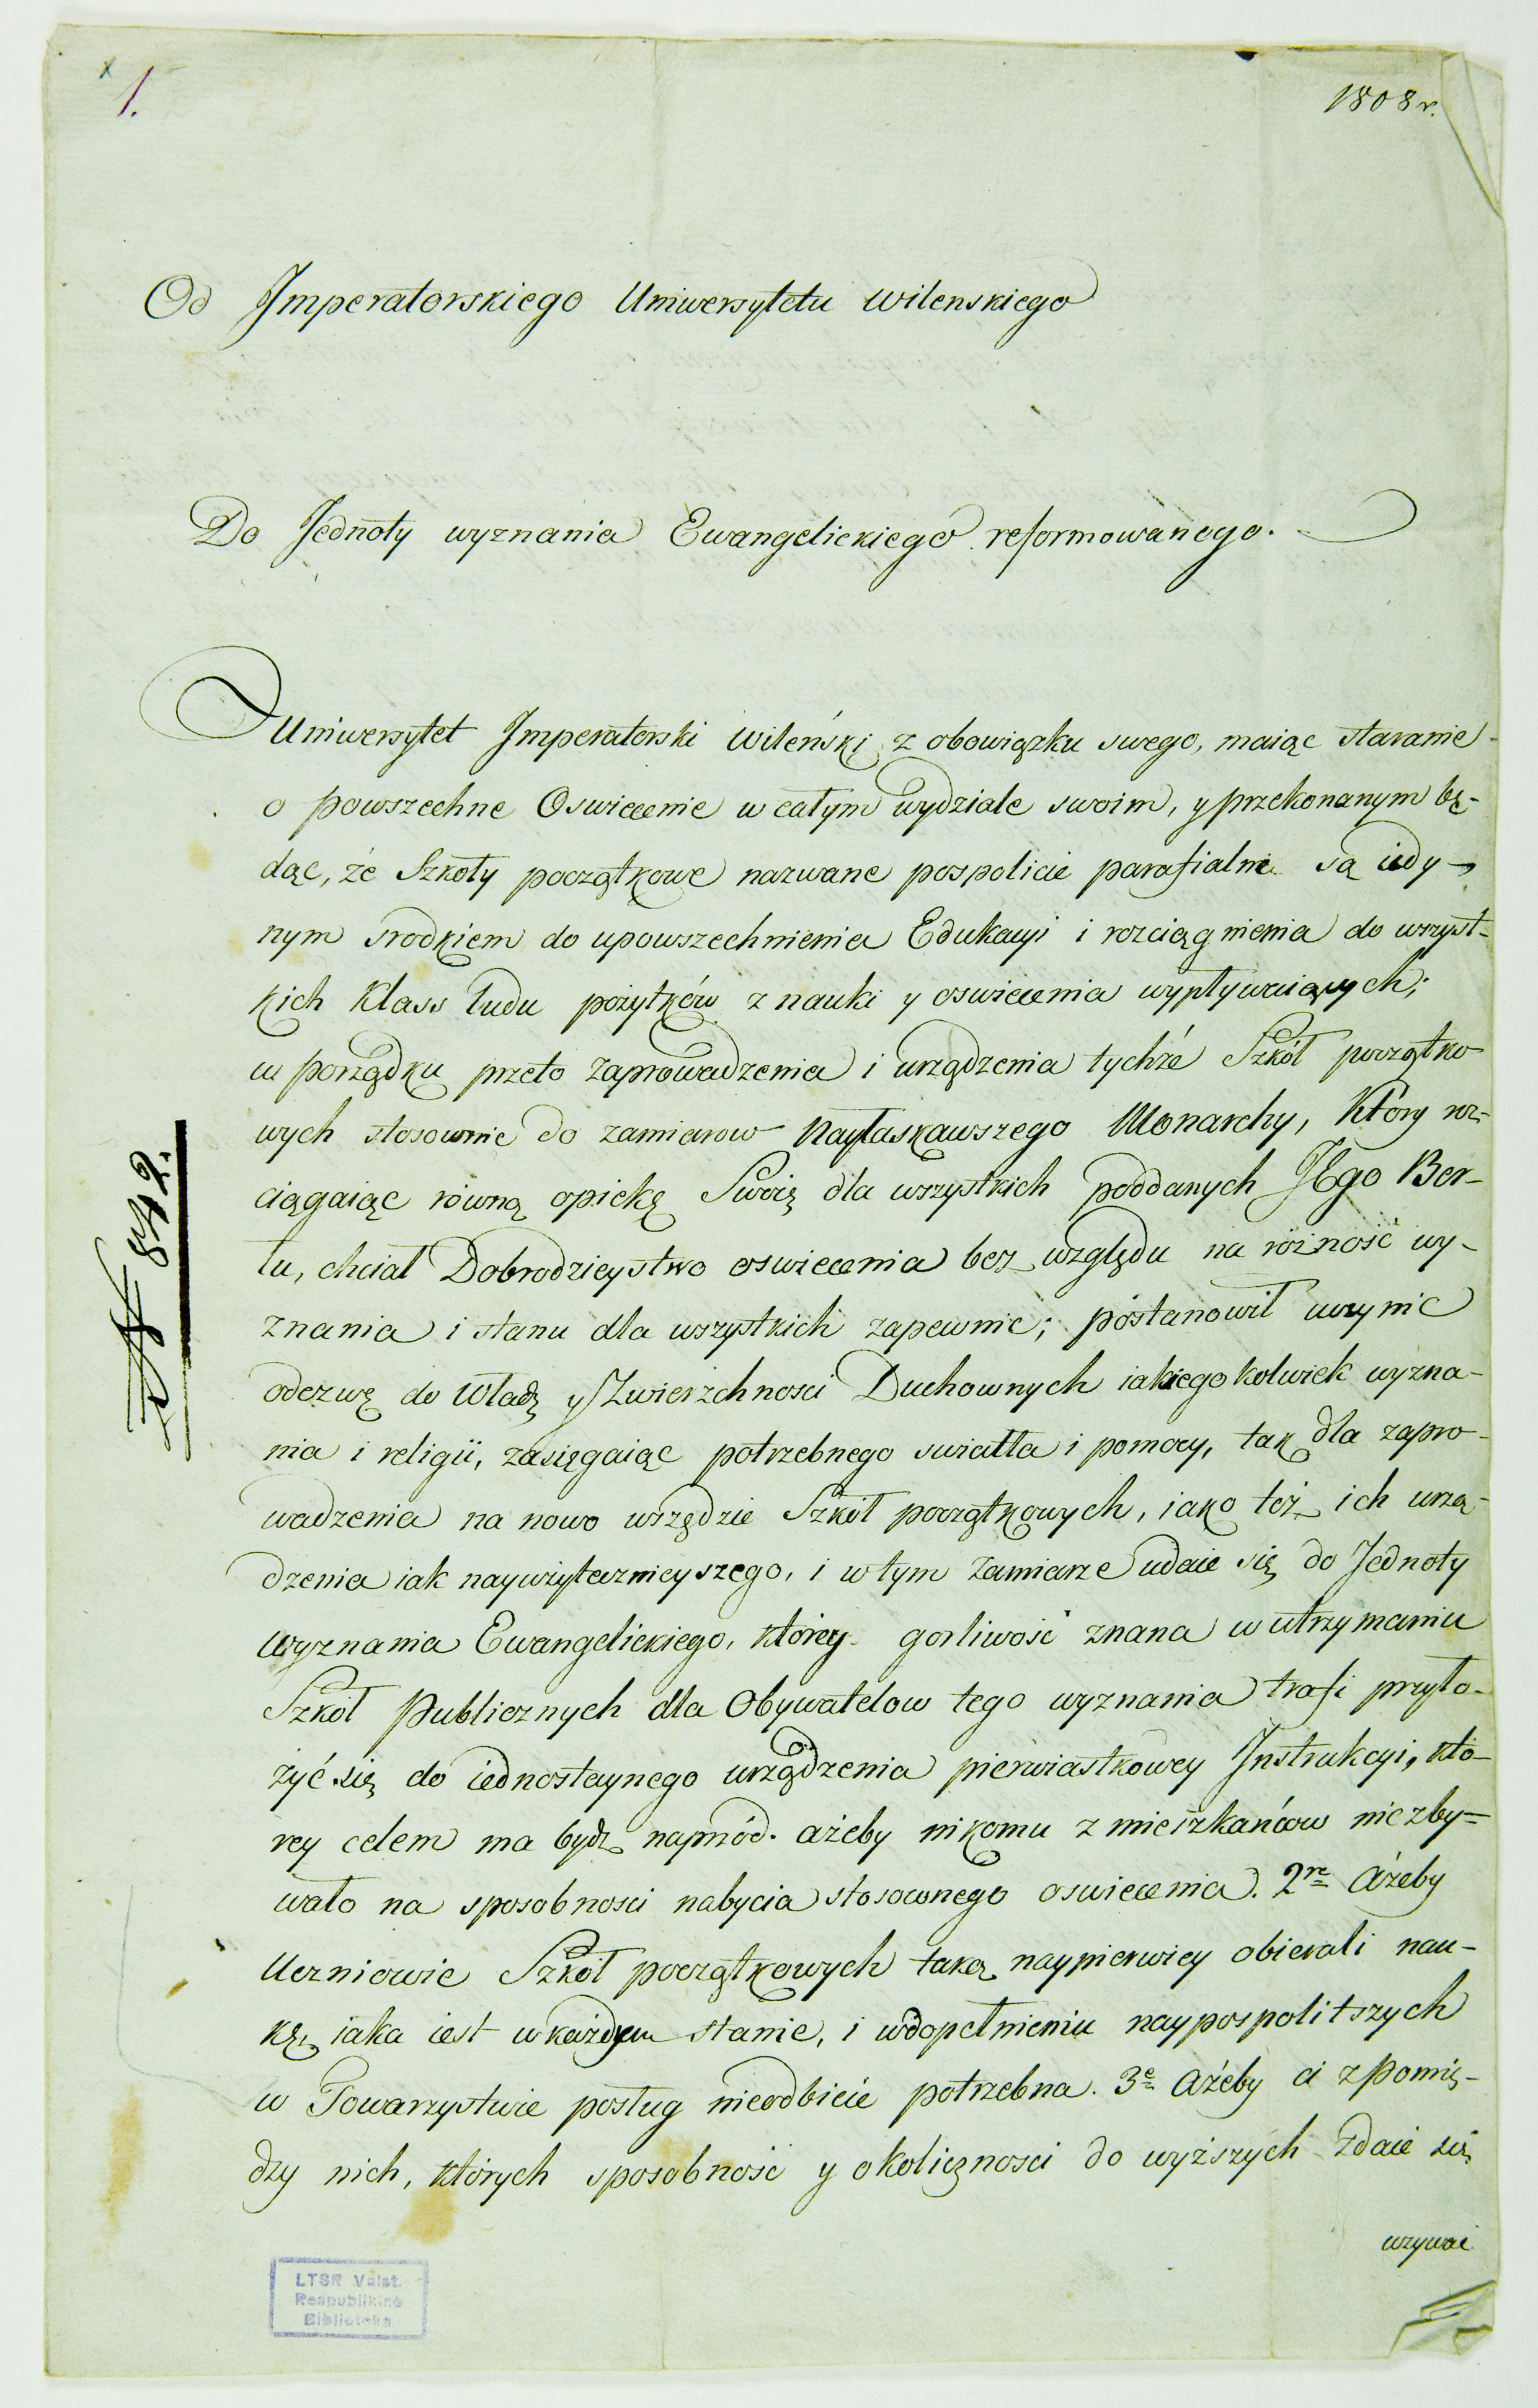 1.
1808 r.
Od Imperatorskiego Uniwersytetu Wilenskiego
Do Jednoty wyznania Ewangelickiego reformowanego.
Uniwersytet Imperatorski Wileński z obowiązku swego, maiąc staranie
o powszechne Oswiecenie w całym wydziale swoim, y przekonanym bę-
dąc, że Szkoły początkowe nazwane pospolicie parafialne są iedy-
nym srodkiem do upowszechnienia Edukacyi i rozciągnienia do wszyst-
kich Klass ludu pożytków z nauki y oswiecenia wypływaiących;
w porządku przeto zaprowadzenia i urządzenia tychże Szkół początko
wych stosownie do zamiarow Nayłaskawszego Monarchy, Który roz-
ciągaiąc równą opiekę Swoię dla wszystkich poddanych JEgo Ber-
łu, chciał Dobrodzieystwo oswiecenia bez względu na różność wy-
znania i stanu dla wszystkich zapewnic; postanowił uczynic
odezwę do Władz y Zwierzchnosci Duchownych iakiegokolwiek wyzna-
nia i religii, zasięgaiąc potrzebnego swiatła i pomocy, tak dla zapro-
wadzenia na nowo wszędzie Szkół początkowych, iako też ich urzą-
dzenia iak nayużytecznieyszego, i w tym zamiarze udaie się do Jednoty
wyznania Ewangelickiego, którey gorliwość znana w utrzymaniu
Szkół Publicznych dla Obywatelow tego wyznania trafi przyło-
żyć się do iednostaynego urządzenia pierwiastkowey Instrukcyi, któ-
rey celem ma bydz naprzód. ażeby nikomu z mieszkańców nie zby-
wało na sposobnosci nabycia stosownego oswiecenia. 2re Ażeby
Uczniowie Szkół początkowych taką naypierwiey obierali nau-
kę, iaka iest w każdym stanie, i w dopełnieniu naypospolitszych
w Towarzystwie posług nieodbicie potrzebna. 3e Ażeby ci z pomię-
dzy nich, których sposobność y okoliczności do wyższych zdaie się
wzywać
№ 842.
LTSR Valst.
Respublikinė
Biblioteka